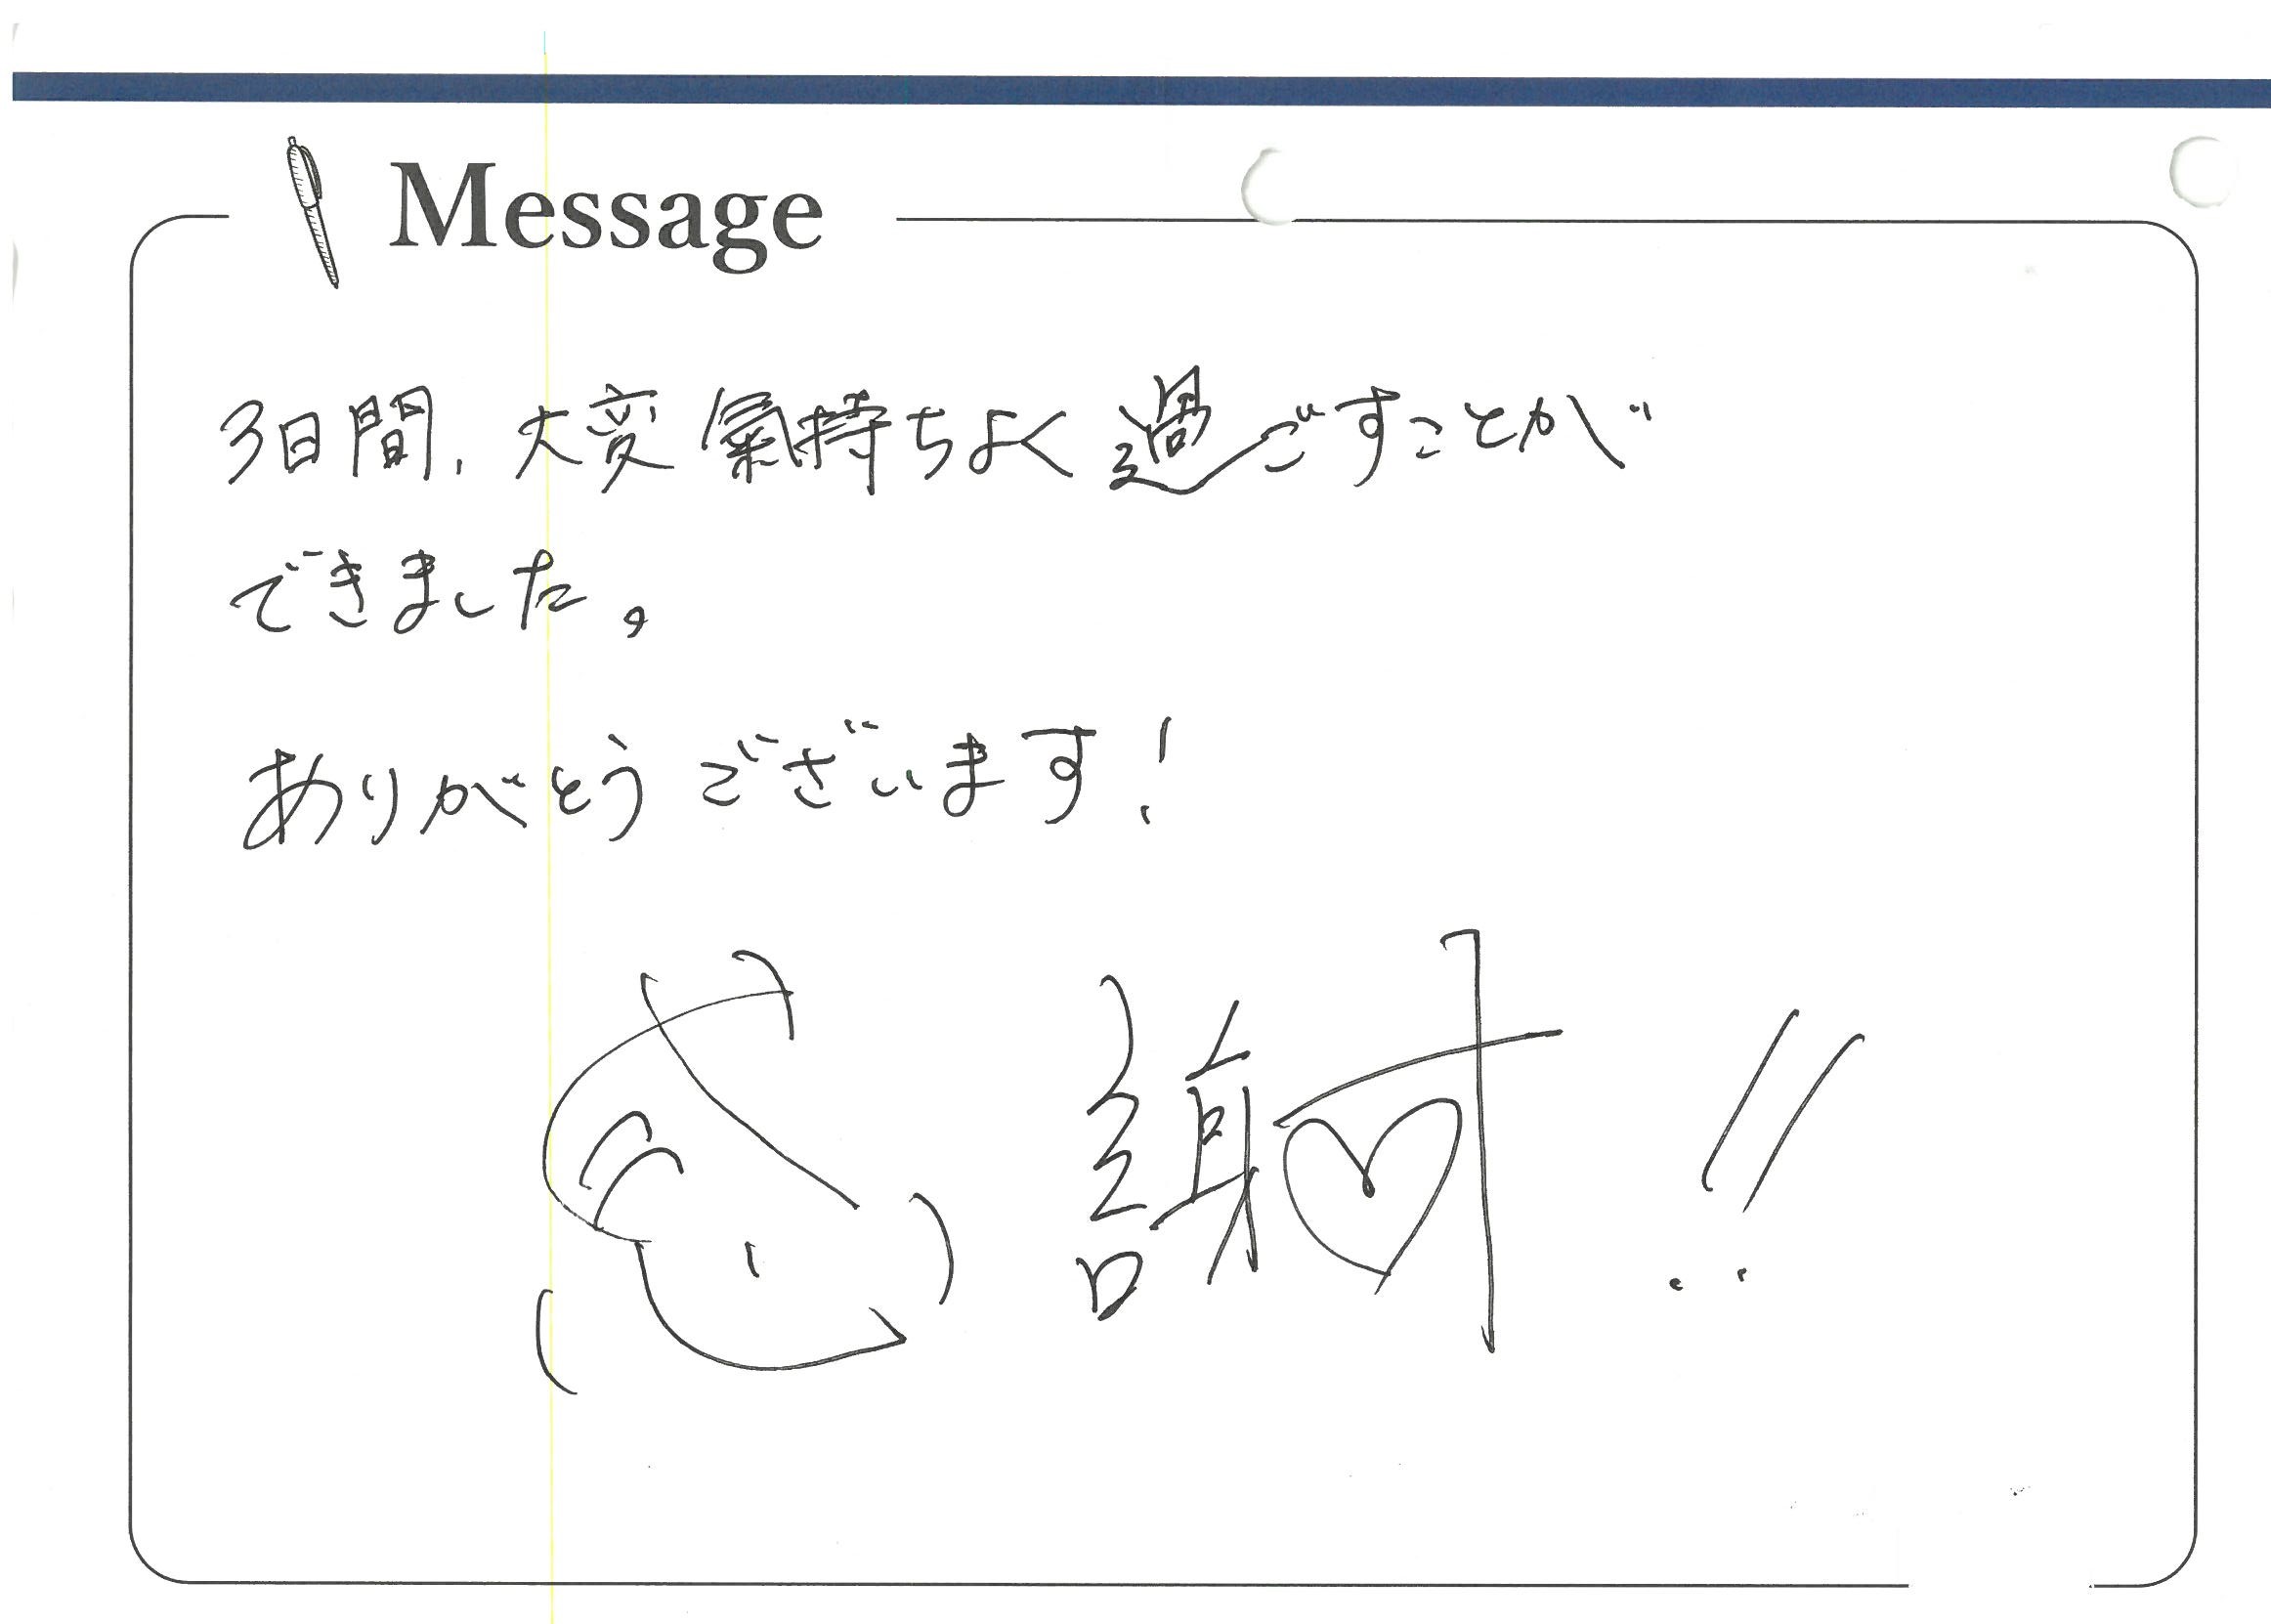 Message
3日間、大変氣持ちよく過ごすことが
できました。
ありがとうございます!
感謝!!